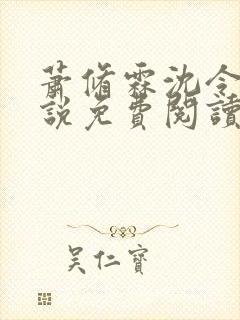 蕭脩霖沈令
說免費閱讀
吴仁寶